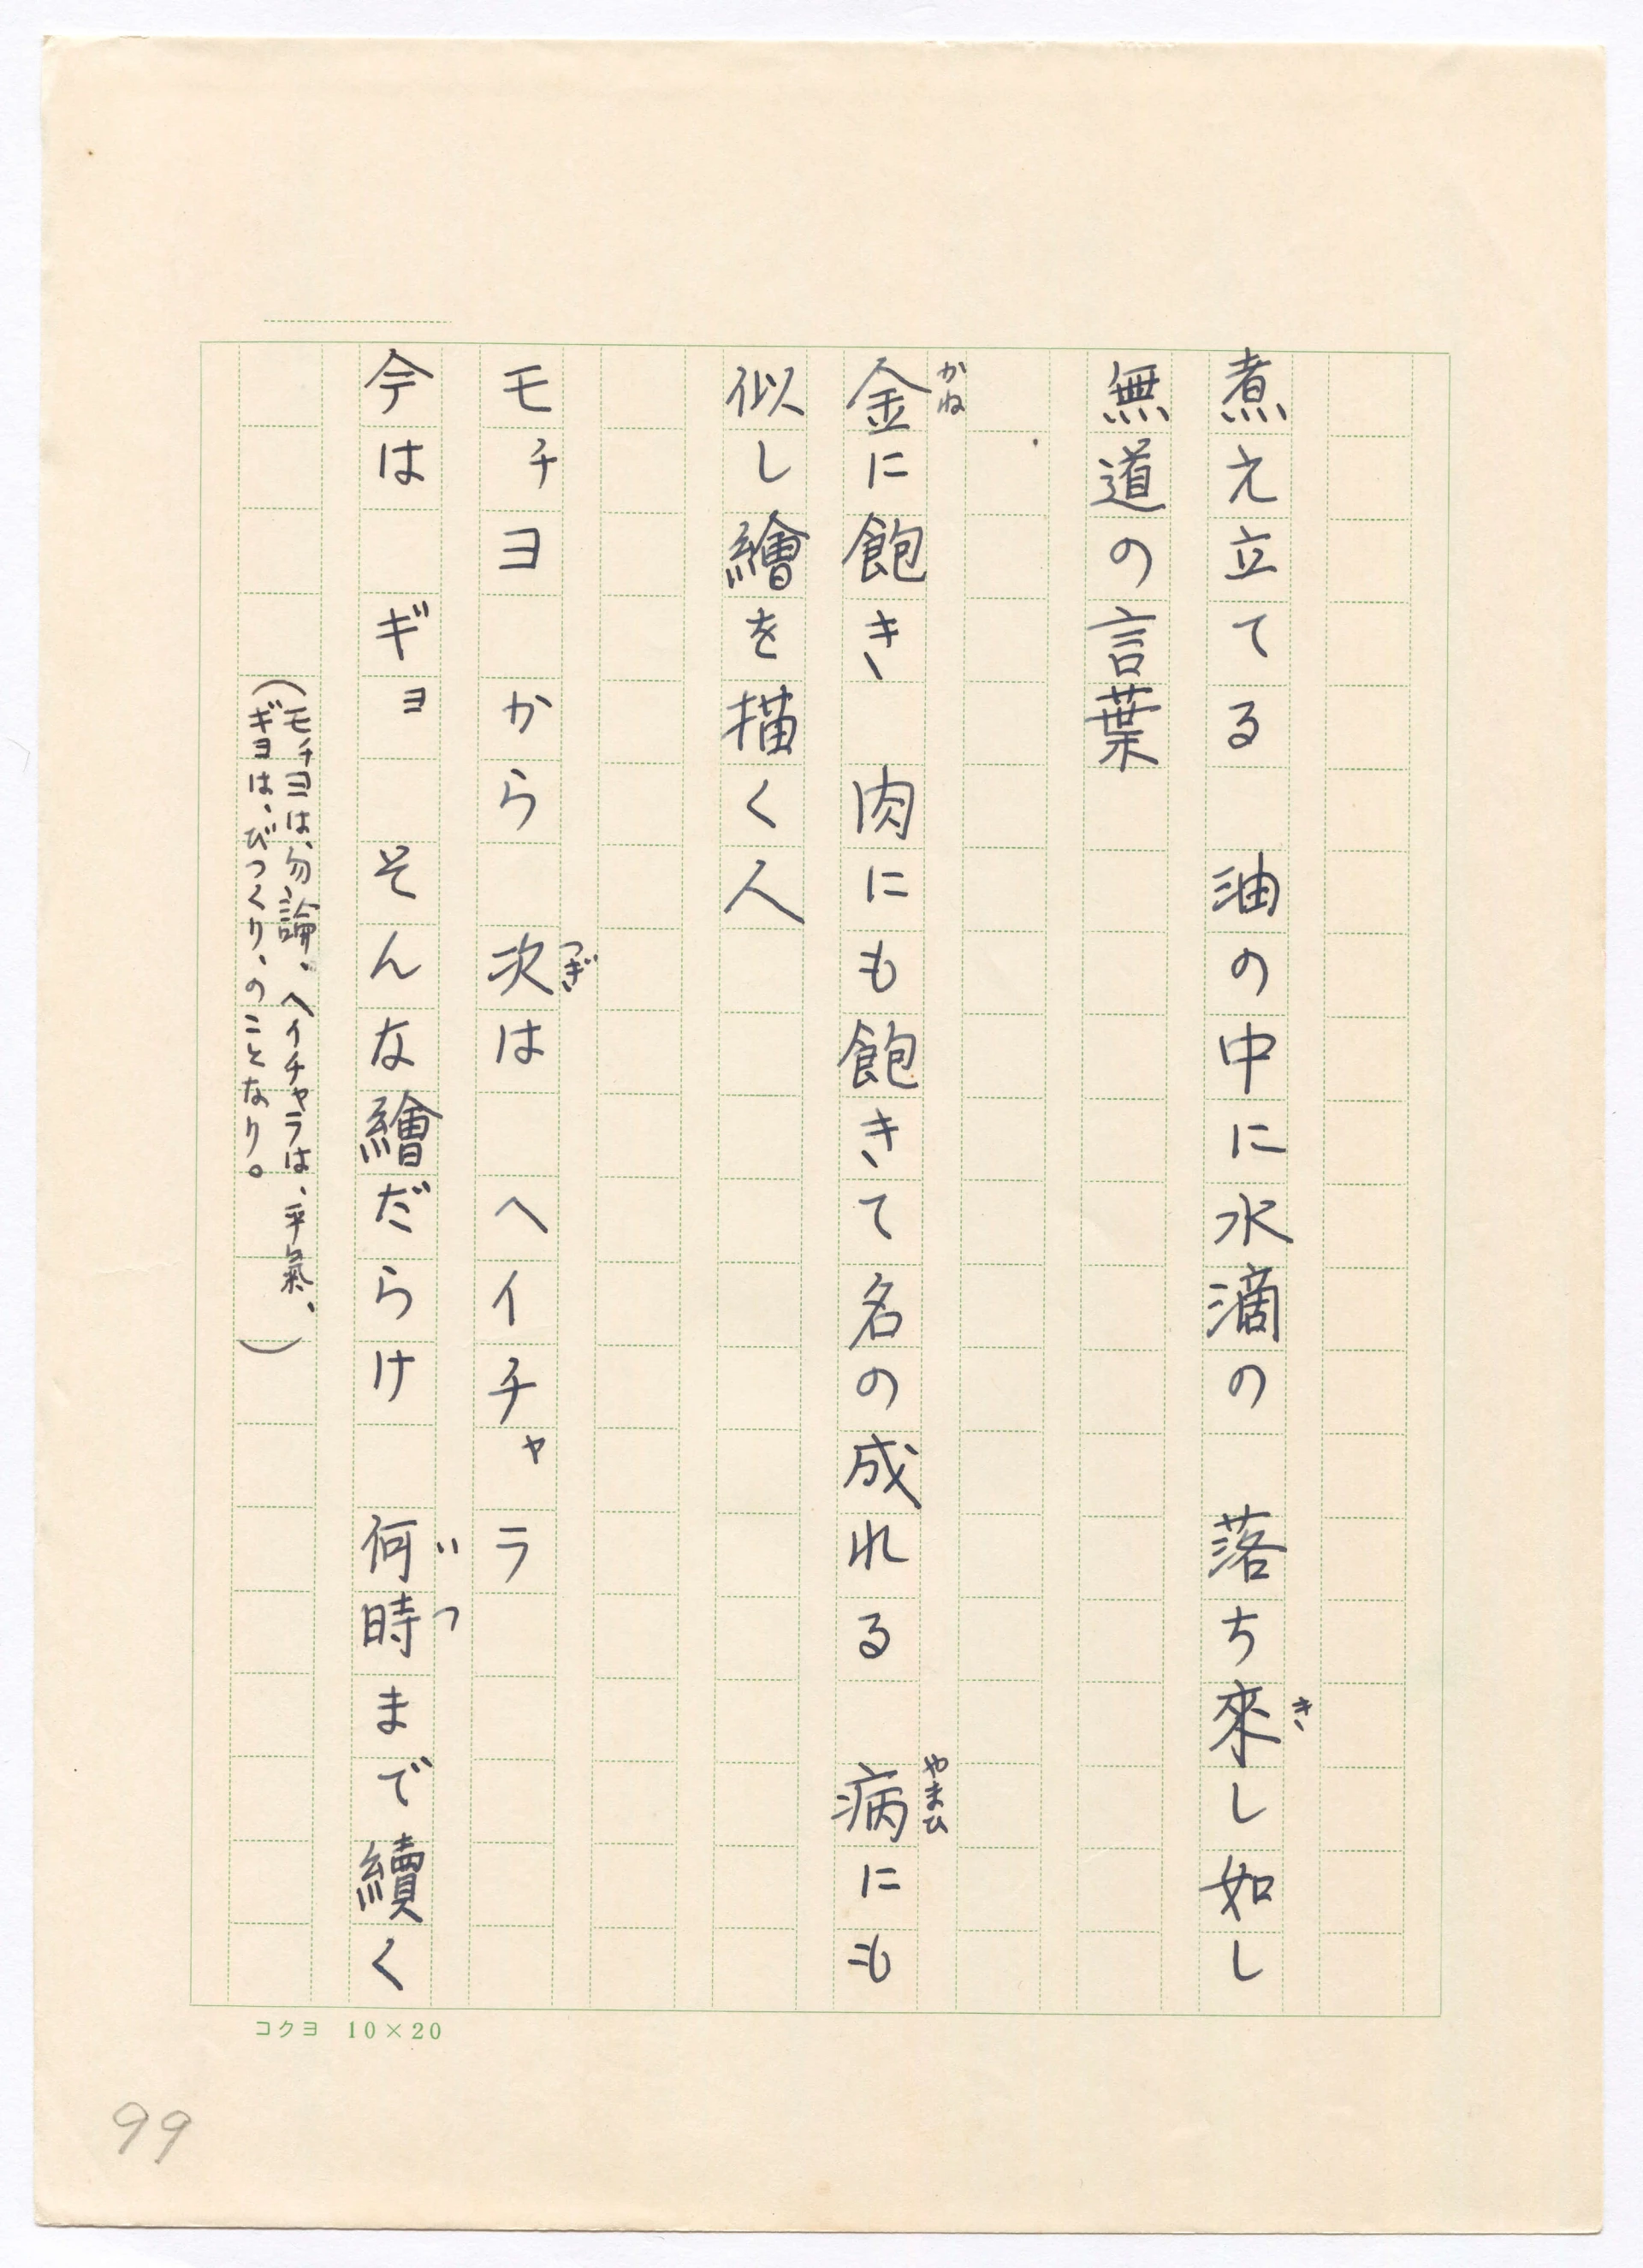 煮え立てる　油の中に水滴の　落ち來し如し
無道の言葉
金に飽き　肉にも飽きて名の成れる　病にも
似し繪を描く人
モチヨ　から　次は　ヘイチャラ
今は　ギョ　そんな繪だらけ　何時まで續く
（モチヨは、勿論、ヘイチャラは、平氣、
ギヨは、びつくり、のことなり。）
かね
やまひ
き
つぎ
いつ
コクヨ 10×20
99